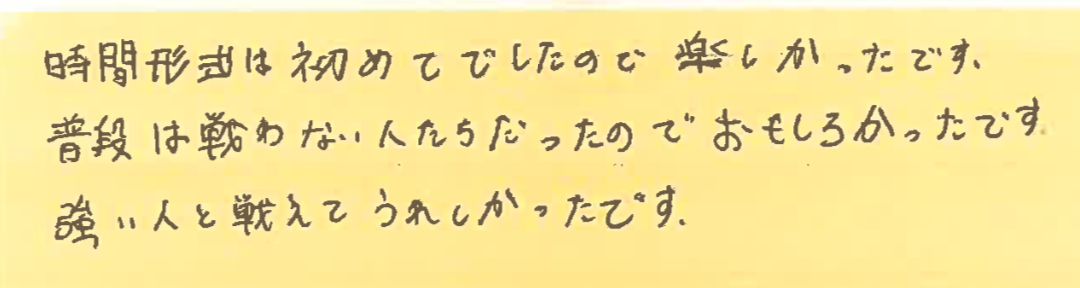 時間形式は初めてでしたので楽しかったです、
普段は戦わない人たちだったのでおもしろかったです
強い人と戦えてうれしかったです.